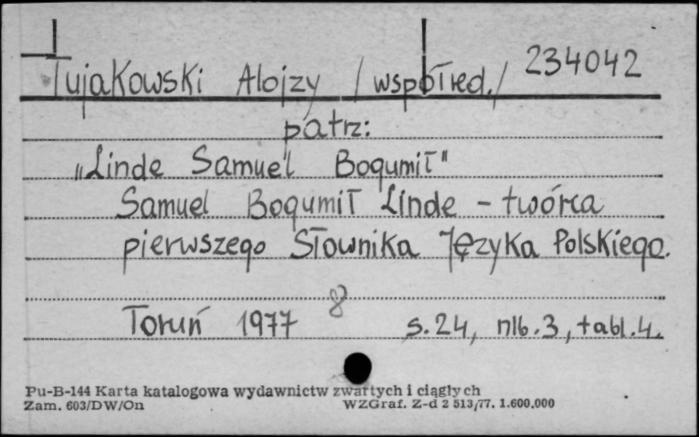 Tujakowski Alojzy /współred./ 234042
patrz:
"Linde Samuel Bogumił"
Samuel Bogumił Linde - twórca
pierwszego Słownika Języka Polskiego.
8
Toruń 1977 s.24, nlb.3, tabl.4.
Pu-B-144 Karta katalogowa wydawnictw zwartych i ciągłych
Zam. 603/DW/On WZGraf. Z-d 2 513/77. 1.600.000